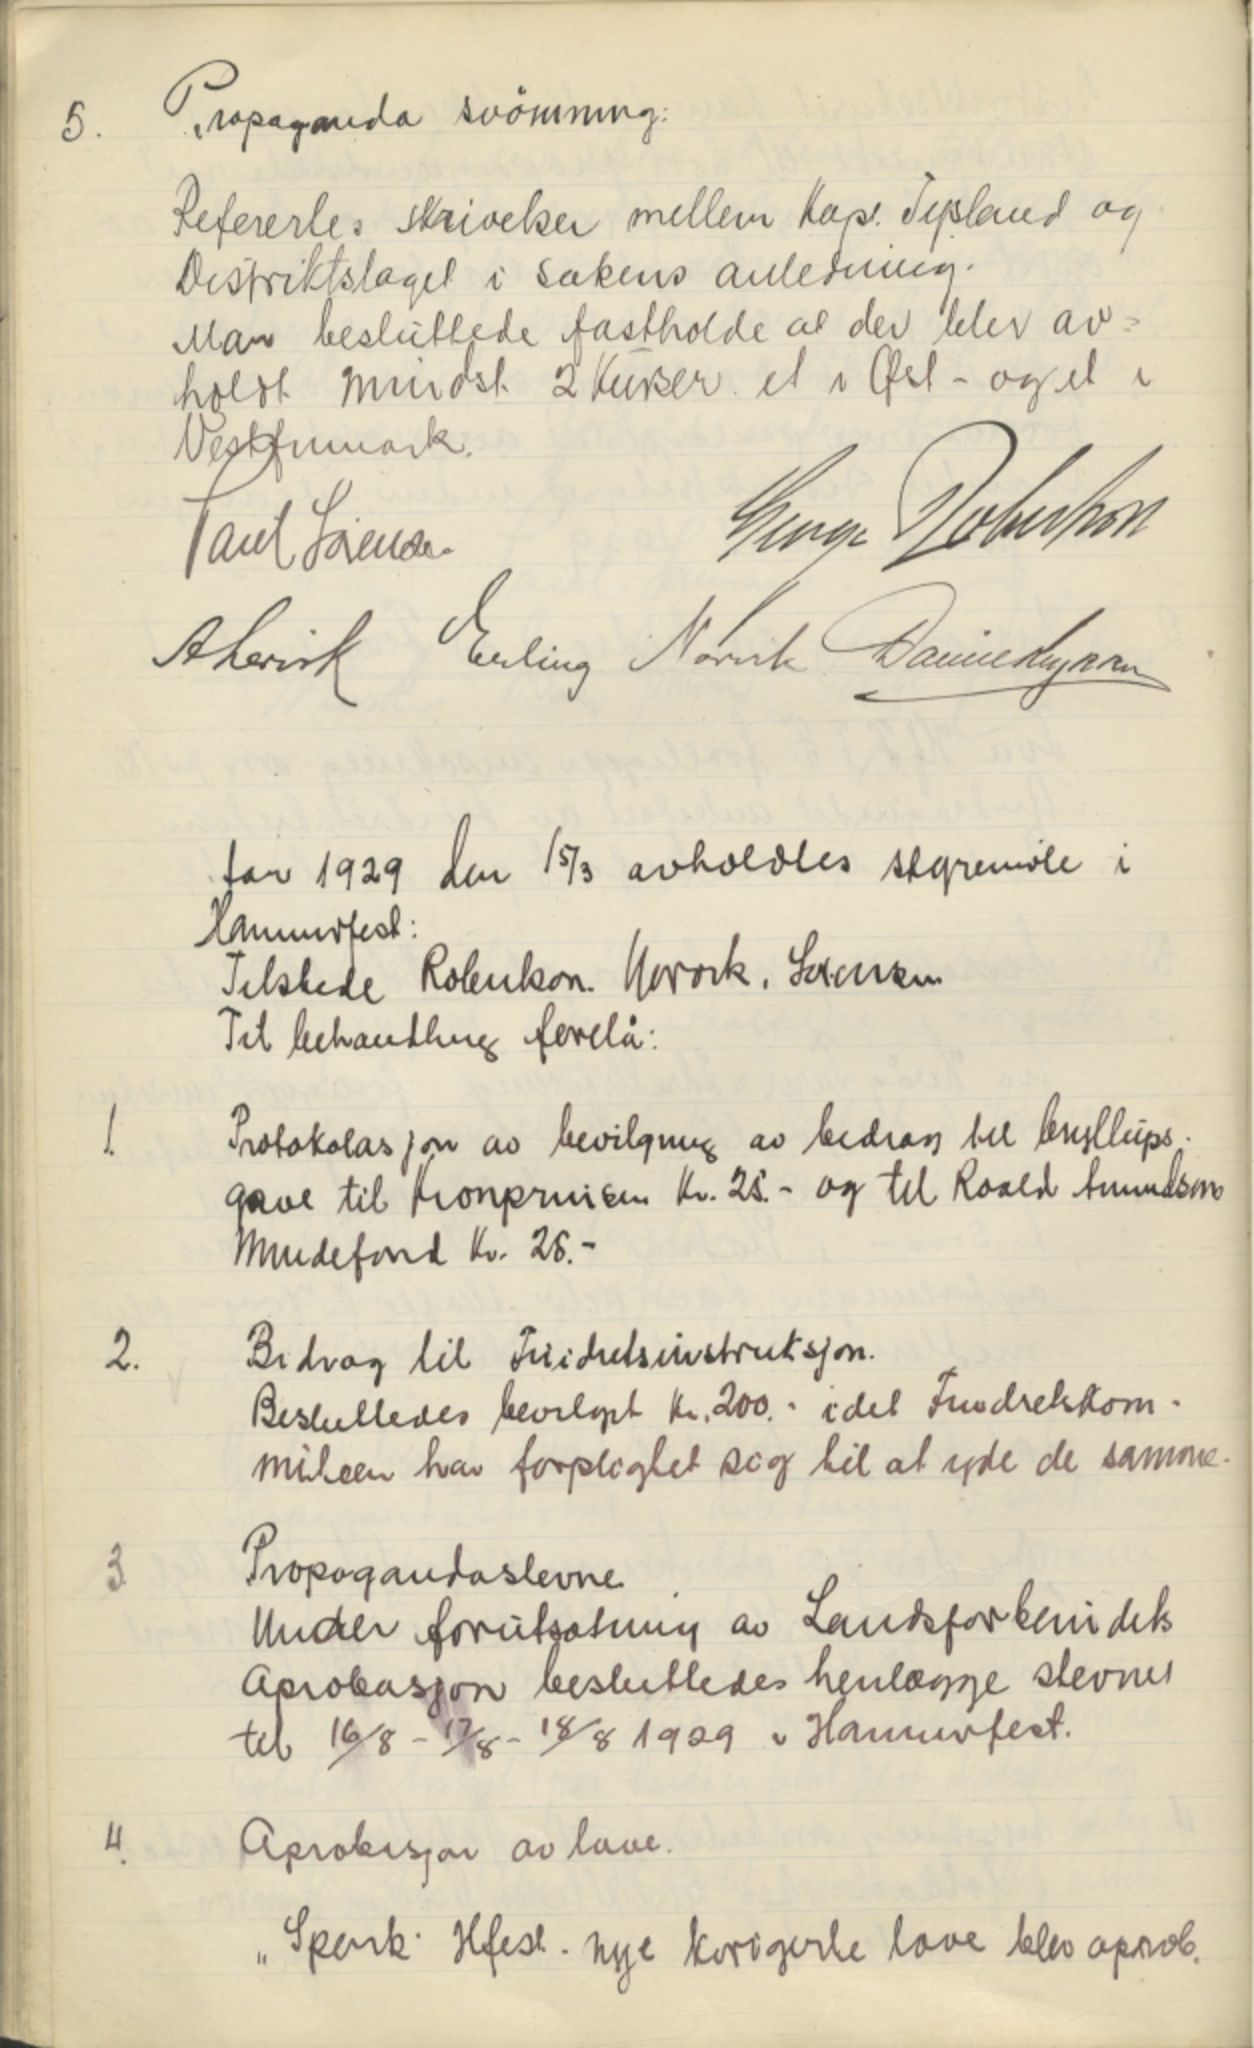 5. Propaganda svömming:
Refererte skrivelser mellem Kap. Tipland og
Distriktslaget i sakens anledning.
Man besluttede fastholde at der blev av=
holdt mindst 2 Kurser et i Øst- og et i
Vestfinmark.
Paul Sörensen George Robertson
A Lervik Erling Norvik
Aar 1929 den 15/3 avholdtes styremöte i
Hammerfest:
Tilstede Robertson. Norvik, Sörensen
Til behandling forelå:
1. Protokolasjon av bevilgning av bedrag til bryllups-
gave til Kronprinsen Kr. 25.- og til Roald Amundsens
Mindefond Kr. 25.-
2. Bidrag til Friidretsinstruksjon.
Besluttedes bevilget Kr. 200.- idet Friidretskom-
miteen har forpligtet sig til at yde de samme.
3 Propagandastevne
Under forutsætning av Landsforbundets
Aprobasjon besluttedes henlægge stevnet
til 16/8 - 17/8 - 18/8 1929 i Hammerfest.
4. Aprobasjon av love.
"Spark" Hfest. nye korigerte love blev aprob.